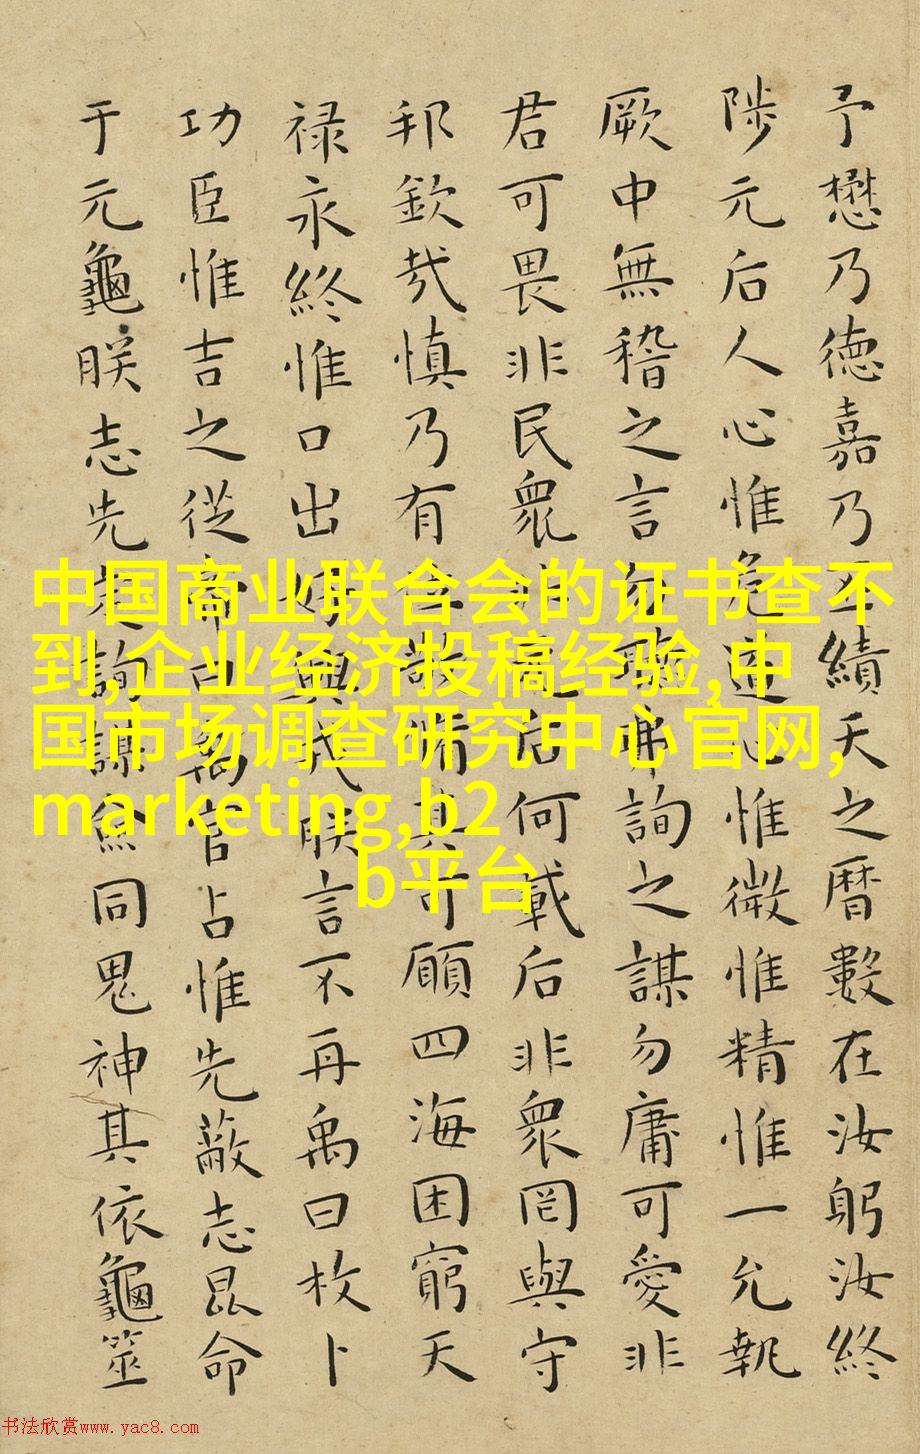 予懋乃德嘉乃丕績天之曆數在汝躬汝終
陟元后人心惟危道心惟微惟精惟一允執
厥中無稽之言勿聽弗詢之謀勿庸可愛非
君可畏非民衆非元后何戴后非衆罔與守
邦欽哉慎乃有位敬脩其可願四海困窮天
禄永終惟口出好興戎朕言不再禹曰枚卜
功臣惟吉之從帝曰禹官占惟先蔽志昆命
于元龜朕志先定詢謀僉同鬼神其依龜筮
中国商业联合会的证书查不
到,企业经济投稿经验,中
国市场调查研究中心官网,
marketing,b2
b平台
书法欣赏www.yac8.com